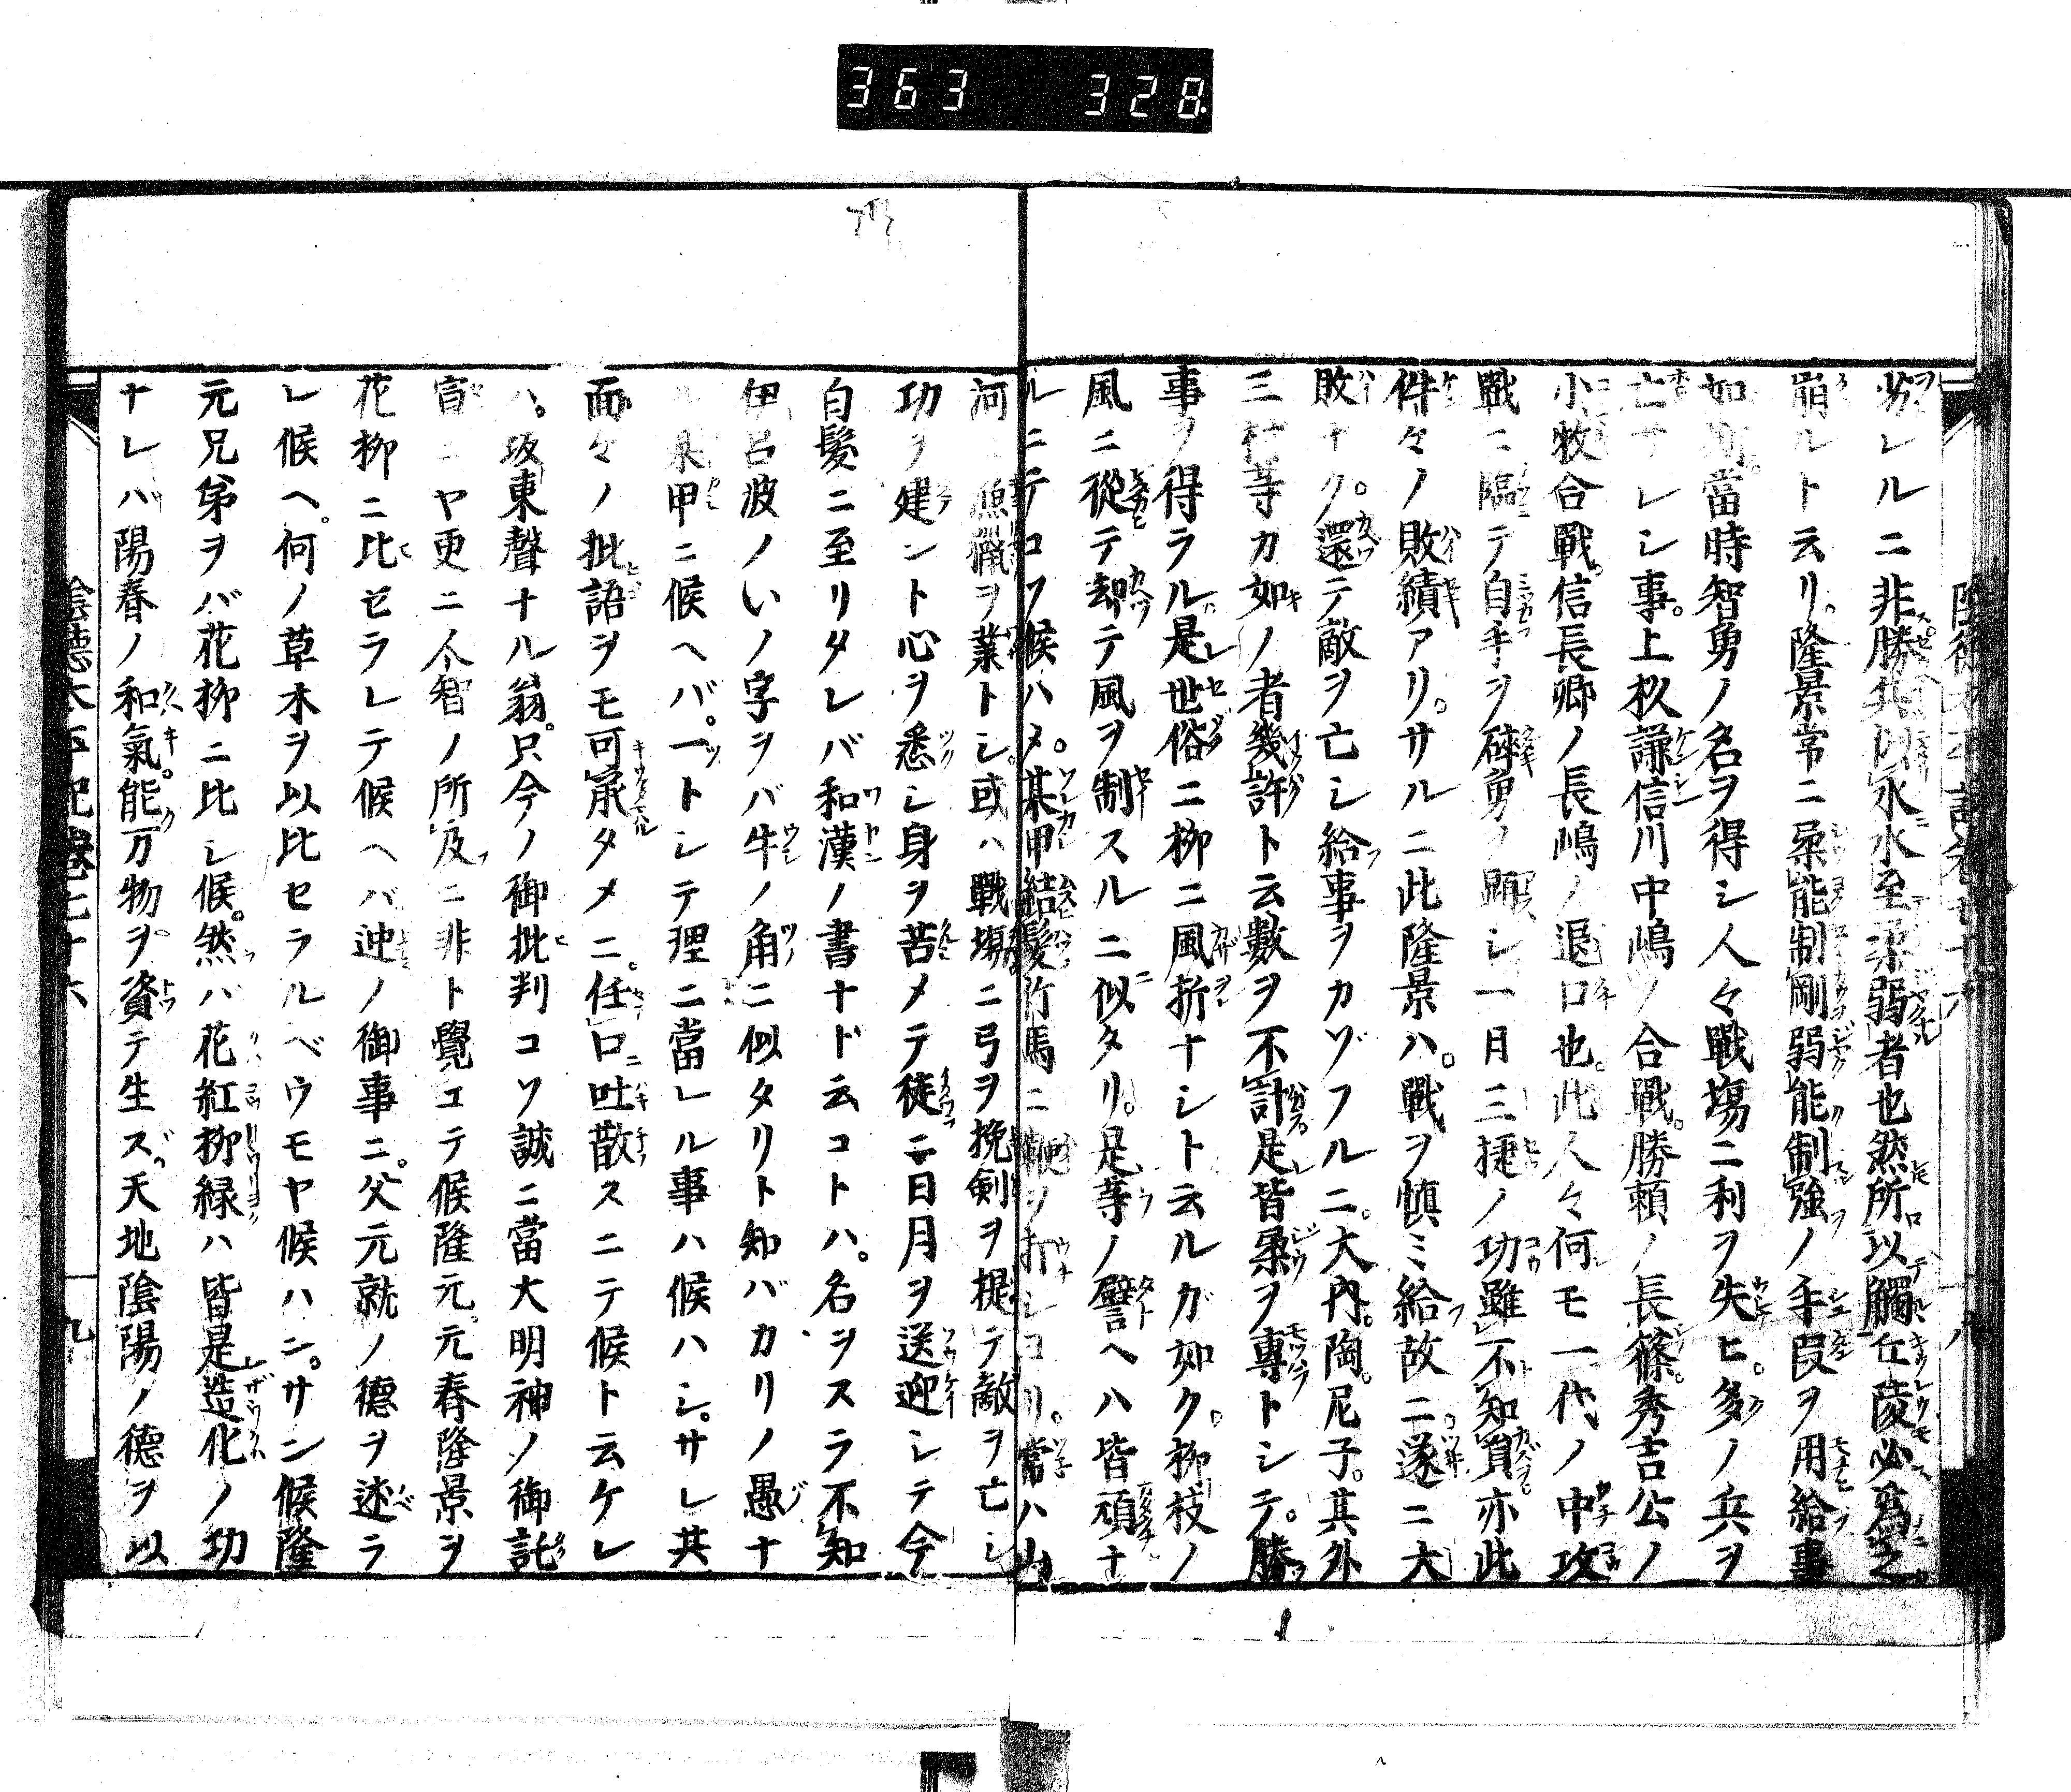 363 328
劣レルニ非勝矣以水水至柔弱者也然所以觸丘陵必為之
崩ルト云リ。隆景常ニ柔能制剛弱能制強ノ手段ヲ用給事
如斯。當時智勇ノ名ヲ得シ人々戰塲ニ利ヲ失ヒ。多ノ兵ヲ
亡サレシ事。上杦謙信川中嶋ノ合戰。勝頼ノ長篠。秀吉公ノ
小牧合戰。信長卿ノ長嶋ノ退口也。此人々何モ一代ノ中攻
戰ニ臨テ自手ヲ碎勇ノ顕シ一日三捷ノ功雖不知貟亦此
件々ノ敗績アリ。サルニ此隆景ハ。戰ヲ慎ミ給故ニ。遂ニ大
敗ナク。還テ敵ヲ亡シ給事ヲカゾフルニ。大内。陶。尼子。其外
三村等カ如ノ者幾許ト云數ヲ不計是皆柔ヲ專トシテ。勝
事ヲ得ラル。是世俗ニ柳ニ風折ナシト云ルガ如ク。柳枝ノ
風ニ從テ却テ風ヲ制スルニ似タリ。是等ノ譬ヘハ皆頑ナ
ルニテコソ候ハメ。某甲結髮竹馬ニ鞭ヲ打シヨリ。常ハ山
河漁獵ヲ業トシ。或ハ戰塲ニ弓ヲ挽剣ヲ提テ敵ヲ亡シ
功ヲ建ント心ヲ悉シ身ヲ苦メテ徒ニ日月ヲ送迎シテ今
白髮ニ至リタレバ和漢ノ書ナド云コトハ。名ヲスラ不知
伊呂波ノいノ字ヲバ牛ノ角ニ似タリト知バカリノ愚ナ
ル某甲ニ候ヘバ。一トシテ理ニ當レル事ハ候ハシ。サレ共
面々ノ批語ヲモ可承タメニ。任口吐散スニテ候ト云ケレ
ハ。坂東聲ナル翁。只今ノ御批判コソ誠ニ當大明神ノ御託
宣ニヤ更ニ人智ノ所及ニ非ト覺エテ候隆元。元春隆景ヲ
花柳ニ比セラレテ候ヘバ迚ノ御事ニ。父元就ノ德ヲ述ラ
レ候ヘ。何ノ草木ヲ以比セラルベウモヤ候ハン。サン候隆
元兄弟ヲバ花柳ニ比シ候。然バ花紅柳緑ハ皆是造化ノ功
ナレハ陽春ノ和氣。能万物ヲ資テ生ス。天地陰陽ノ德ヲ以
陰德太平記卷七十六
九